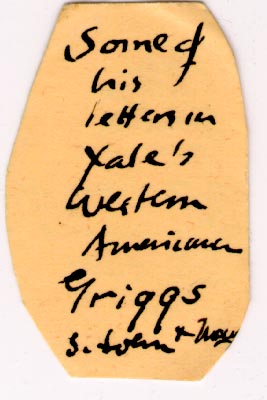 Some of
his
letters in
Yale's
Western
Americana
Griggs